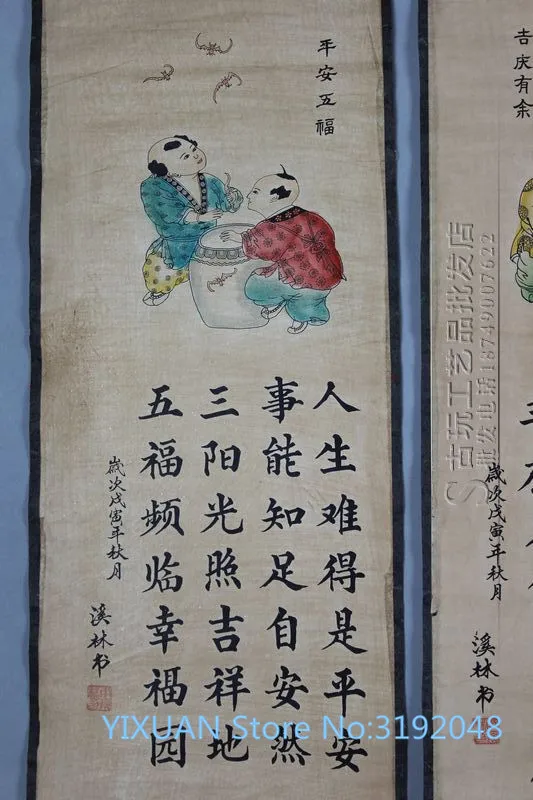 平安五福
人生难得是平安
事能知足自安然
三阳光照吉祥地
五福频临幸福园
歲次戊寅年秋月
溪林书
吉庆有余
歲次戊寅年秋月
溪林书
古玩工艺品批发店
批发电话18749007622
YIXUAN Store No:3192048